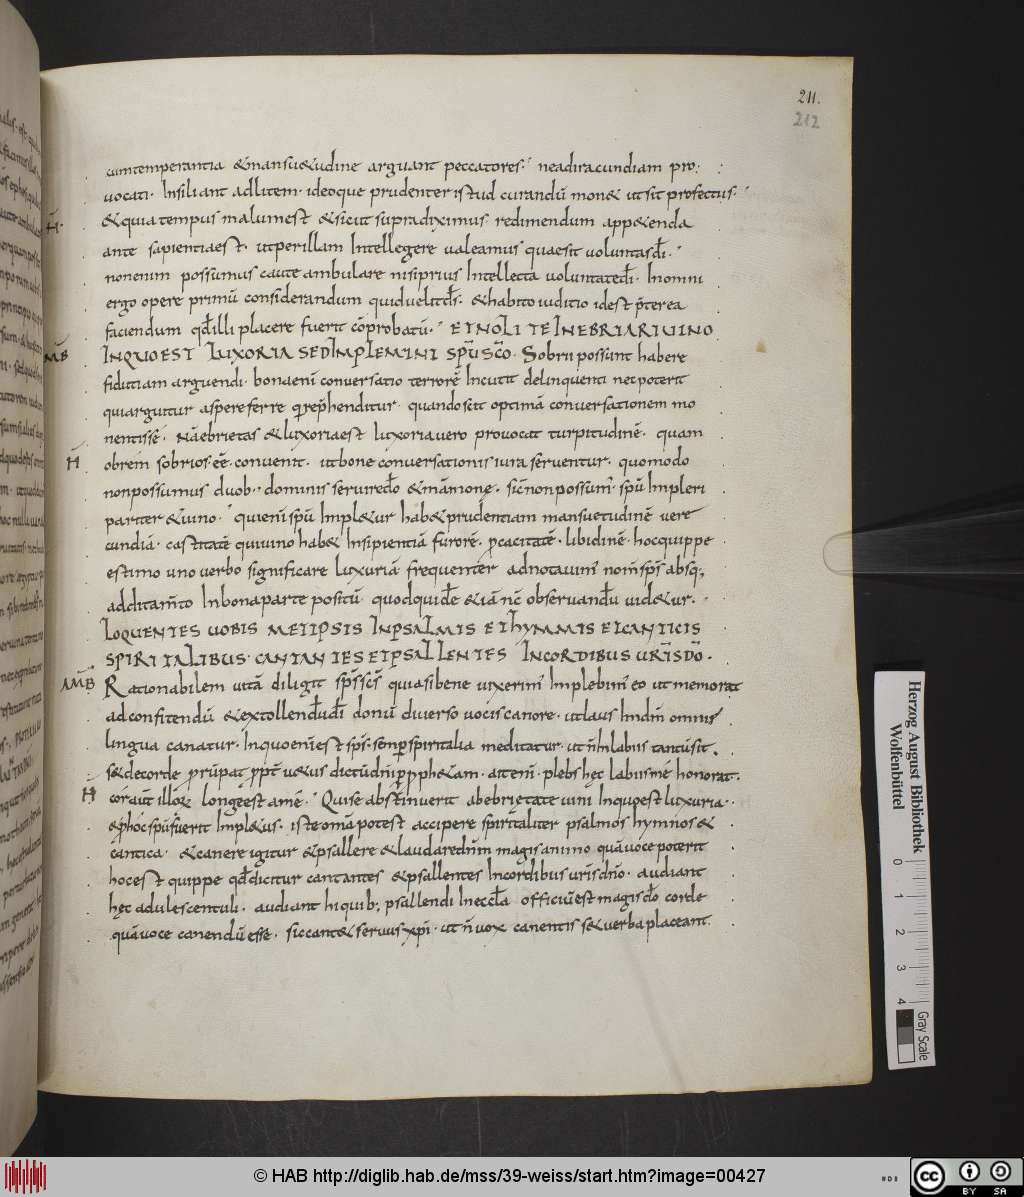 211.
212
cumtemperantia &mansu&udine arguant peccatores. neadiracundiam pro
uocati. Insiliant adlitem. ideoque prudenter istud curandū mon& utsit profectus.
H &quia tempus malumest &sicut supradiximus redimendum app&enda
ante sapientiaest. utperillam Intellegere ualeamus quaesit uoluntasdī.
nonenim possumus caute ambulare nisiprius Intellecta uoluntatedī. Inomni
ergo opere primū considerandum quiduelitdš. &habito iuditio idest p̄terea
faciendum qd̄illi placere fuerit cōprobatū. ETNOLITE INEBRIARIUINO
AMB INQUOEST LUXORIA SEDIMPLEMINI SPŪSCŌ. Sobrii possunt habere
fidutiam arguendi. bonaenī conuersatio terrorē Incutit delinquenti necpoterit
quiarguitur aspereferre q̄rep̄henditur. quandoscit optimā conuersationem mo
nentisse. Nāebrietas &luxoriaest luxoriauero prouocat turpitudinē. quam
H obrem sobrios. eē. conuenit. utbone conuersationisiura seruentur. quomodo
nonpossumus duob. dominis seruiredō &māmone. sic̄nonpossum̄. spū Impleri
pariter &uino. quienī spū Impl&ur hab&prudentiam mansuetudinē uere
cundiā. castitatē quiuino hab& Insipientiā furorē. p̄cacitatē. libidinē. hocquippe
estimo uno uerbo significare luxuriā frequenter adnotauim̄ nom̄sp̄s absq;
additam̄to Inbonaparte positū. quodquidē &iā nc̄ obseruandū uid&ur.
LOQUENTES UOBIS METIPSIS INPSALMIS ETHYMMIS ETCANTICIS
SPIRITALIBUS. CANTANTES ETPSALLENTES INCORDIBUS URĪSDŌ.
AMB Rationabilem uitā diligit sp̄sscs̄ quiasibene uixerim̄ Implebim̄ eo ut memorat
adconfitendū &extollendūdī donū diuerso uociscanore. utlaus Indm̄ omnis
lingua canatur. Inquoenīest sp̄s. semp̄spiritalia meditatur. ut n̄Inlabiis tantūsit.
s&decorde p̄rūpat p̄pt̄ u&us dictūdnīp̄p̄ph&am. attenī. plebs hęc labiismē honorat.
H cor̄aūt illor̄ longeest amē. Quise abstinuerit abebrietate uini Inquoest luxuria.
&p̄hocspūfuerit Impl&us. iste omā potest accipere spiritaliter psalmos hymnos &
cantica. &canere igitur &psallere &laudarednm̄ magisanimo quāuoce poterit
hocest quippe qd̄dicitur cantantes &psallentes Incordibus urīsdn̄o. audiant
hęc adulescentuli. audiant hiquib; psallendi Ineccłā officiūest magisdō corde
quāuoce canendū esse. siccant& seruusxp̄i. ut n̄ uox canentis s&uerba placeant.
Herzog August Bibliothek
Wolfenbüttel
0 1 2 3 4
Gray Scale
© HAB http://diglib.hab.de/mss/39-weiss/start.htm?image=00427
cc BY SA